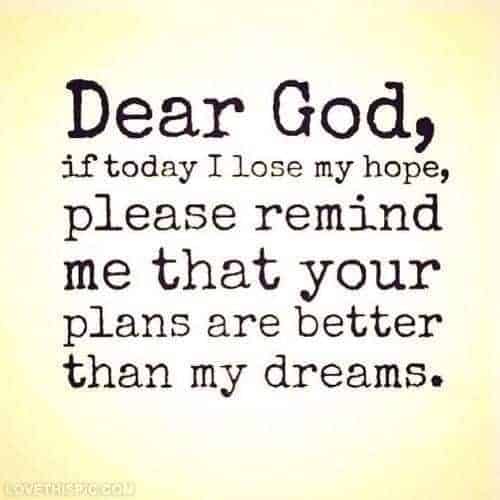 Dear God,
if today I lose my hope,
please remind
me that your
plans are better
than my dreams.
LOVETHISPIC.COM